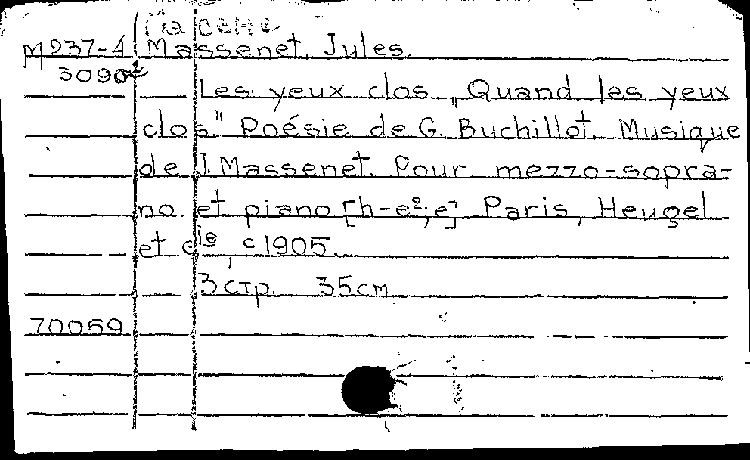 Массне
М 237-4 Massenet, Jules.
3090
Les yeux clos „Quand les yeux
clos" Poésie de G. Buchillot. Musique
de J. Massenet. Pour mezzo-sopra-
no et piano [h-e²; e]. Paris, Heugel
et cie, c 1905.
3 стр. 35 см
70059